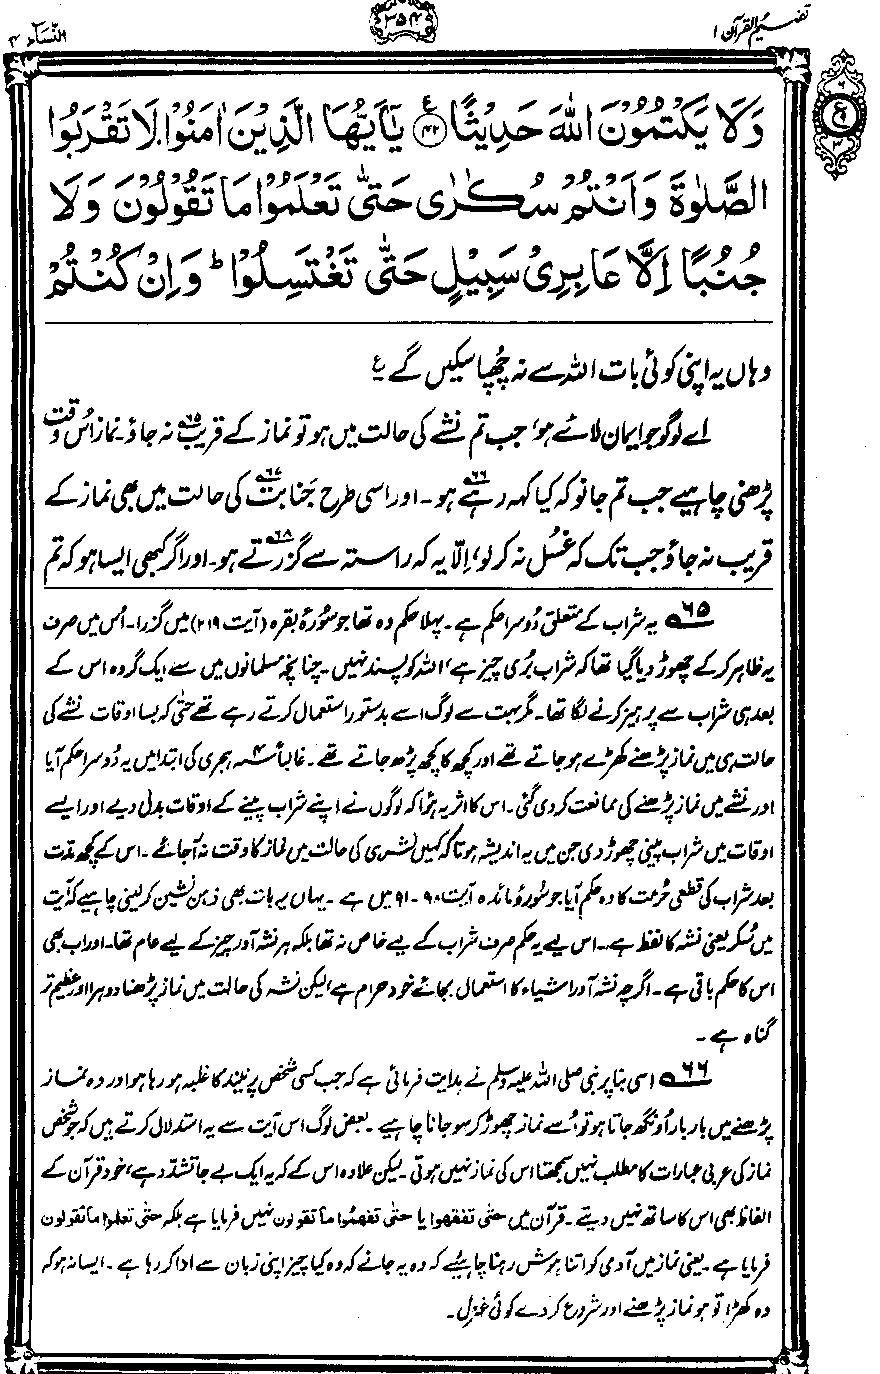 تفہیم القرآن ۱
۳۵۴
النساء ۴
وَلَا يَكْتُمُوْنَ اللّٰهَ حَدِيْثًا ﴿۴۲﴾ يٰۤاَيُّهَا الَّذِيْنَ اٰمَنُوْا لَا تَقْرَبُوا
الصَّلٰوةَ وَاَنْتُمْ سُكٰرٰى حَتّٰى تَعْلَمُوْا مَا تَقُوْلُوْنَ وَلَا
جُنُبًا اِلَّا عَابِرِىْ سَبِيْلٍ حَتّٰى تَغْتَسِلُوْا ؕ وَاِنْ كُنْتُمْ
وہاں یہ اپنی کوئی بات اللہ سے نہ چُھپا سکیں گے ع
اے لوگو جو ایمان لائے ہو، جب تم نشے کی حالت میں ہو تو نماز کے قریب۶۵ نہ جاؤ۔ نماز اُس وقت
پڑھنی چاہیے جب تم جانو کہ کیا کہہ رہے۶۶ ہو۔ اور اسی طرح جَنابت۶۷ کی حالت میں بھی نماز کے
قریب نہ جاؤ جب تک کہ غُسل نہ کر لو، اِلّا یہ کہ راستہ سے گزرتے۶۸ ہو۔ اور اگر کبھی ایسا ہو کہ تم
۶۵ یہ شراب کے متعلق دُوسرا حکم ہے۔ پہلا حکم وہ تھا جو سُورۂ بقرہ (آیت ۲۱۹) میں گزرا۔ اُس میں صرف
یہ ظاہر کر کے چھوڑ دیا گیا تھا کہ شراب بُری چیز ہے، اللہ کو پسند نہیں۔ چنانچہ مسلمانوں میں سے ایک گروہ اس کے
بعد ہی شراب سے پرہیز کرنے لگا تھا۔ مگر بہت سے لوگ اسے بدستور استعمال کرتے رہے تھے حتٰی کہ بسا اوقات نشے کی
حالت ہی میں نماز پڑھنے کھڑے ہو جاتے تھے اور کچھ کا کچھ پڑھ جاتے تھے۔ غالباً ۴ ہجری کی ابتدا میں یہ دُوسرا حکم آیا
اور نشے میں نماز پڑھنے کی ممانعت کر دی گئی۔ اس کا اثر یہ ہوا کہ لوگوں نے اپنے شراب پینے کے اوقات بدل دیے اور ایسے
اوقات میں شراب پینی چھوڑ دی جن میں یہ اندیشہ ہوتا کہ کہیں نشہ ہی کی حالت میں نماز کا وقت نہ آ جائے۔ اس کے کچھ مدت
بعد شراب کی قطعی حُرمت کا وہ حکم آیا جو سُورۂ مائدہ آیت ۹۰-۹۱ میں ہے۔ یہاں یہ بات بھی ذہن نشین کر لینی چاہیے کہ آیت
میں سُکر یعنی نشہ کا لفظ ہے۔ اس لیے یہ حکم صرف شراب کے لیے خاص نہ تھا بلکہ ہر نشہ آور چیز کے لیے عام تھا۔ اور اب بھی
اس کا حکم باقی ہے۔ اگرچہ نشہ آور اشیاء کا استعمال بجائے خود حرام ہے، لیکن نشہ کی حالت میں نماز پڑھنا دوہرا اور عظیم تر
گناہ ہے۔
۶۶ اسی بنا پر نبی صلی اللہ علیہ وسلم نے ہدایت فرمائی ہے کہ جب کسی شخص پر نیند کا غلبہ ہو رہا ہو اور وہ نماز
پڑھنے میں بار بار اُونگھ جاتا ہو تو اُسے نماز چھوڑ کر سو جانا چاہیے۔ بعض لوگ اس آیت سے یہ استدلال کرتے ہیں کہ جو شخص
نماز کی عربی عبارات کا مطلب نہیں سمجھتا اس کی نماز نہیں ہوتی۔ لیکن علاوہ اس کے کہ یہ ایک بے جا تشدّد ہے، خود قرآن کے
الفاظ بھی اس کا ساتھ نہیں دیتے۔ قرآن میں حتٰی تفقھوا یا حتٰی تفھمُوا ما تقولون نہیں فرمایا ہے بلکہ حتٰی تعلموا ما تقولون
فرمایا ہے۔ یعنی نماز میں آدمی کو اتنا ہوش رہنا چاہیے کہ وہ یہ جانے کہ وہ کیا چیز اپنی زبان سے ادا کر رہا ہے۔ ایسا نہ ہو کہ
وہ کھڑا تو ہو نماز پڑھنے اور شروع کر دے کوئی غزل۔